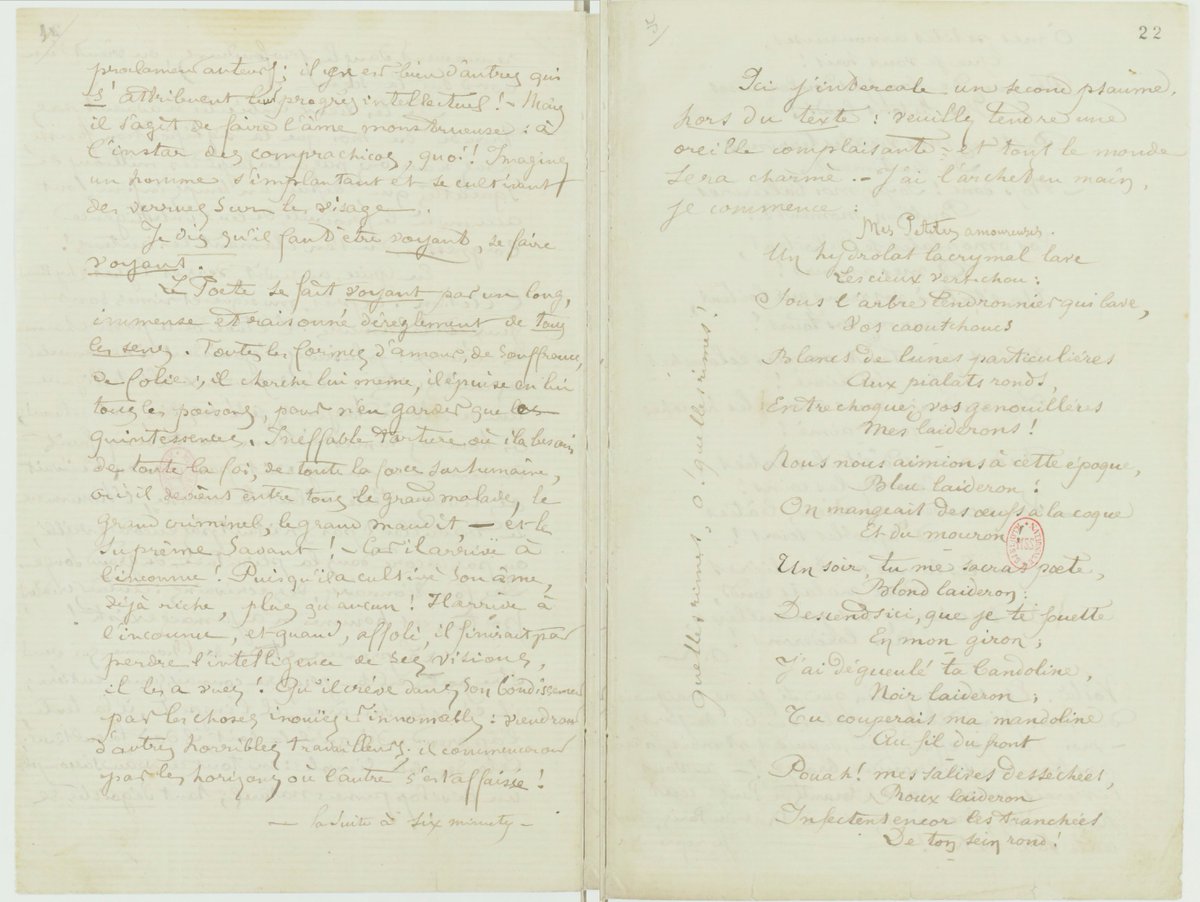 proclament auteurs ; il en est bien d'autres qui
s'attribuent leurs progrès intellectuels ! – Mais
il s'agit de faire l'âme monstrueuse : à
l'instar des comprachicos, quoi ! Imaginez
un homme s'implantant et se cultivant
des verrues sur le visage.
Je dis qu'il faut être voyant, se faire
voyant.
Le Poète se fait voyant par un long,
immense et raisonné dérèglement de tous
les sens. Toutes les formes d'amour, de souffrance,
de folie ; il cherche lui même, il épuise en lui
tous les poisons, pour n'en garder que les
quintessences. Ineffable torture où il a besoin
de toute la foi, de toute la force surhumaine,
où il devient entre tous le grand malade, le
grand criminel, le grand maudit, – et le
suprême Savant ! – Car il arrive à
l'inconnu ! Puisqu'il a cultivé son âme,
déjà riche, plus qu'aucun ! Il arrive à
l'inconnu, et quand, affolé, il finirait par
perdre l'intelligence de ses visions,
il les a vues ! Qu'il crève dans son bondissement
par les choses inouïes et innomables : viendront
d'autres horribles travailleurs ; ils commenceront
par les horizons où l'autre s'est affaissé !
– la suite à six minutes –
22
Ici j'intercale un second psaume,
hors du texte : veuillez tendre une
oreille complaisante, – et tout le monde
sera charmé. – J'ai l'archet en main,
je commence :
Mes Petites amoureuses.
Un hydrolat lacrymal lave
Les cieux vert-chou :
Sous l'arbre tendronnier qui bave,
Vos caoutchoucs
Blancs de lunes particulières
Aux pialats ronds,
Entrechoquez vos genouillères
Mes laiderons !
Nous nous aimions à cette époque,
Bleu laideron !
On mangeait des œufs à la coque
Et du mouron !
Un soir, tu me sacras poète,
Blond laideron :
Descends ici, que je te fouette
En mon giron ;
J'ai dégueulé ta bandoline,
Noir laideron ;
Tu couperais ma mandoline
Au fil du front
Pouah ! mes salives desséchées,
Roux laideron
Infectent encor les tranchées
De ton sein rond !
quelles rimes, ô ! quelles rimes !